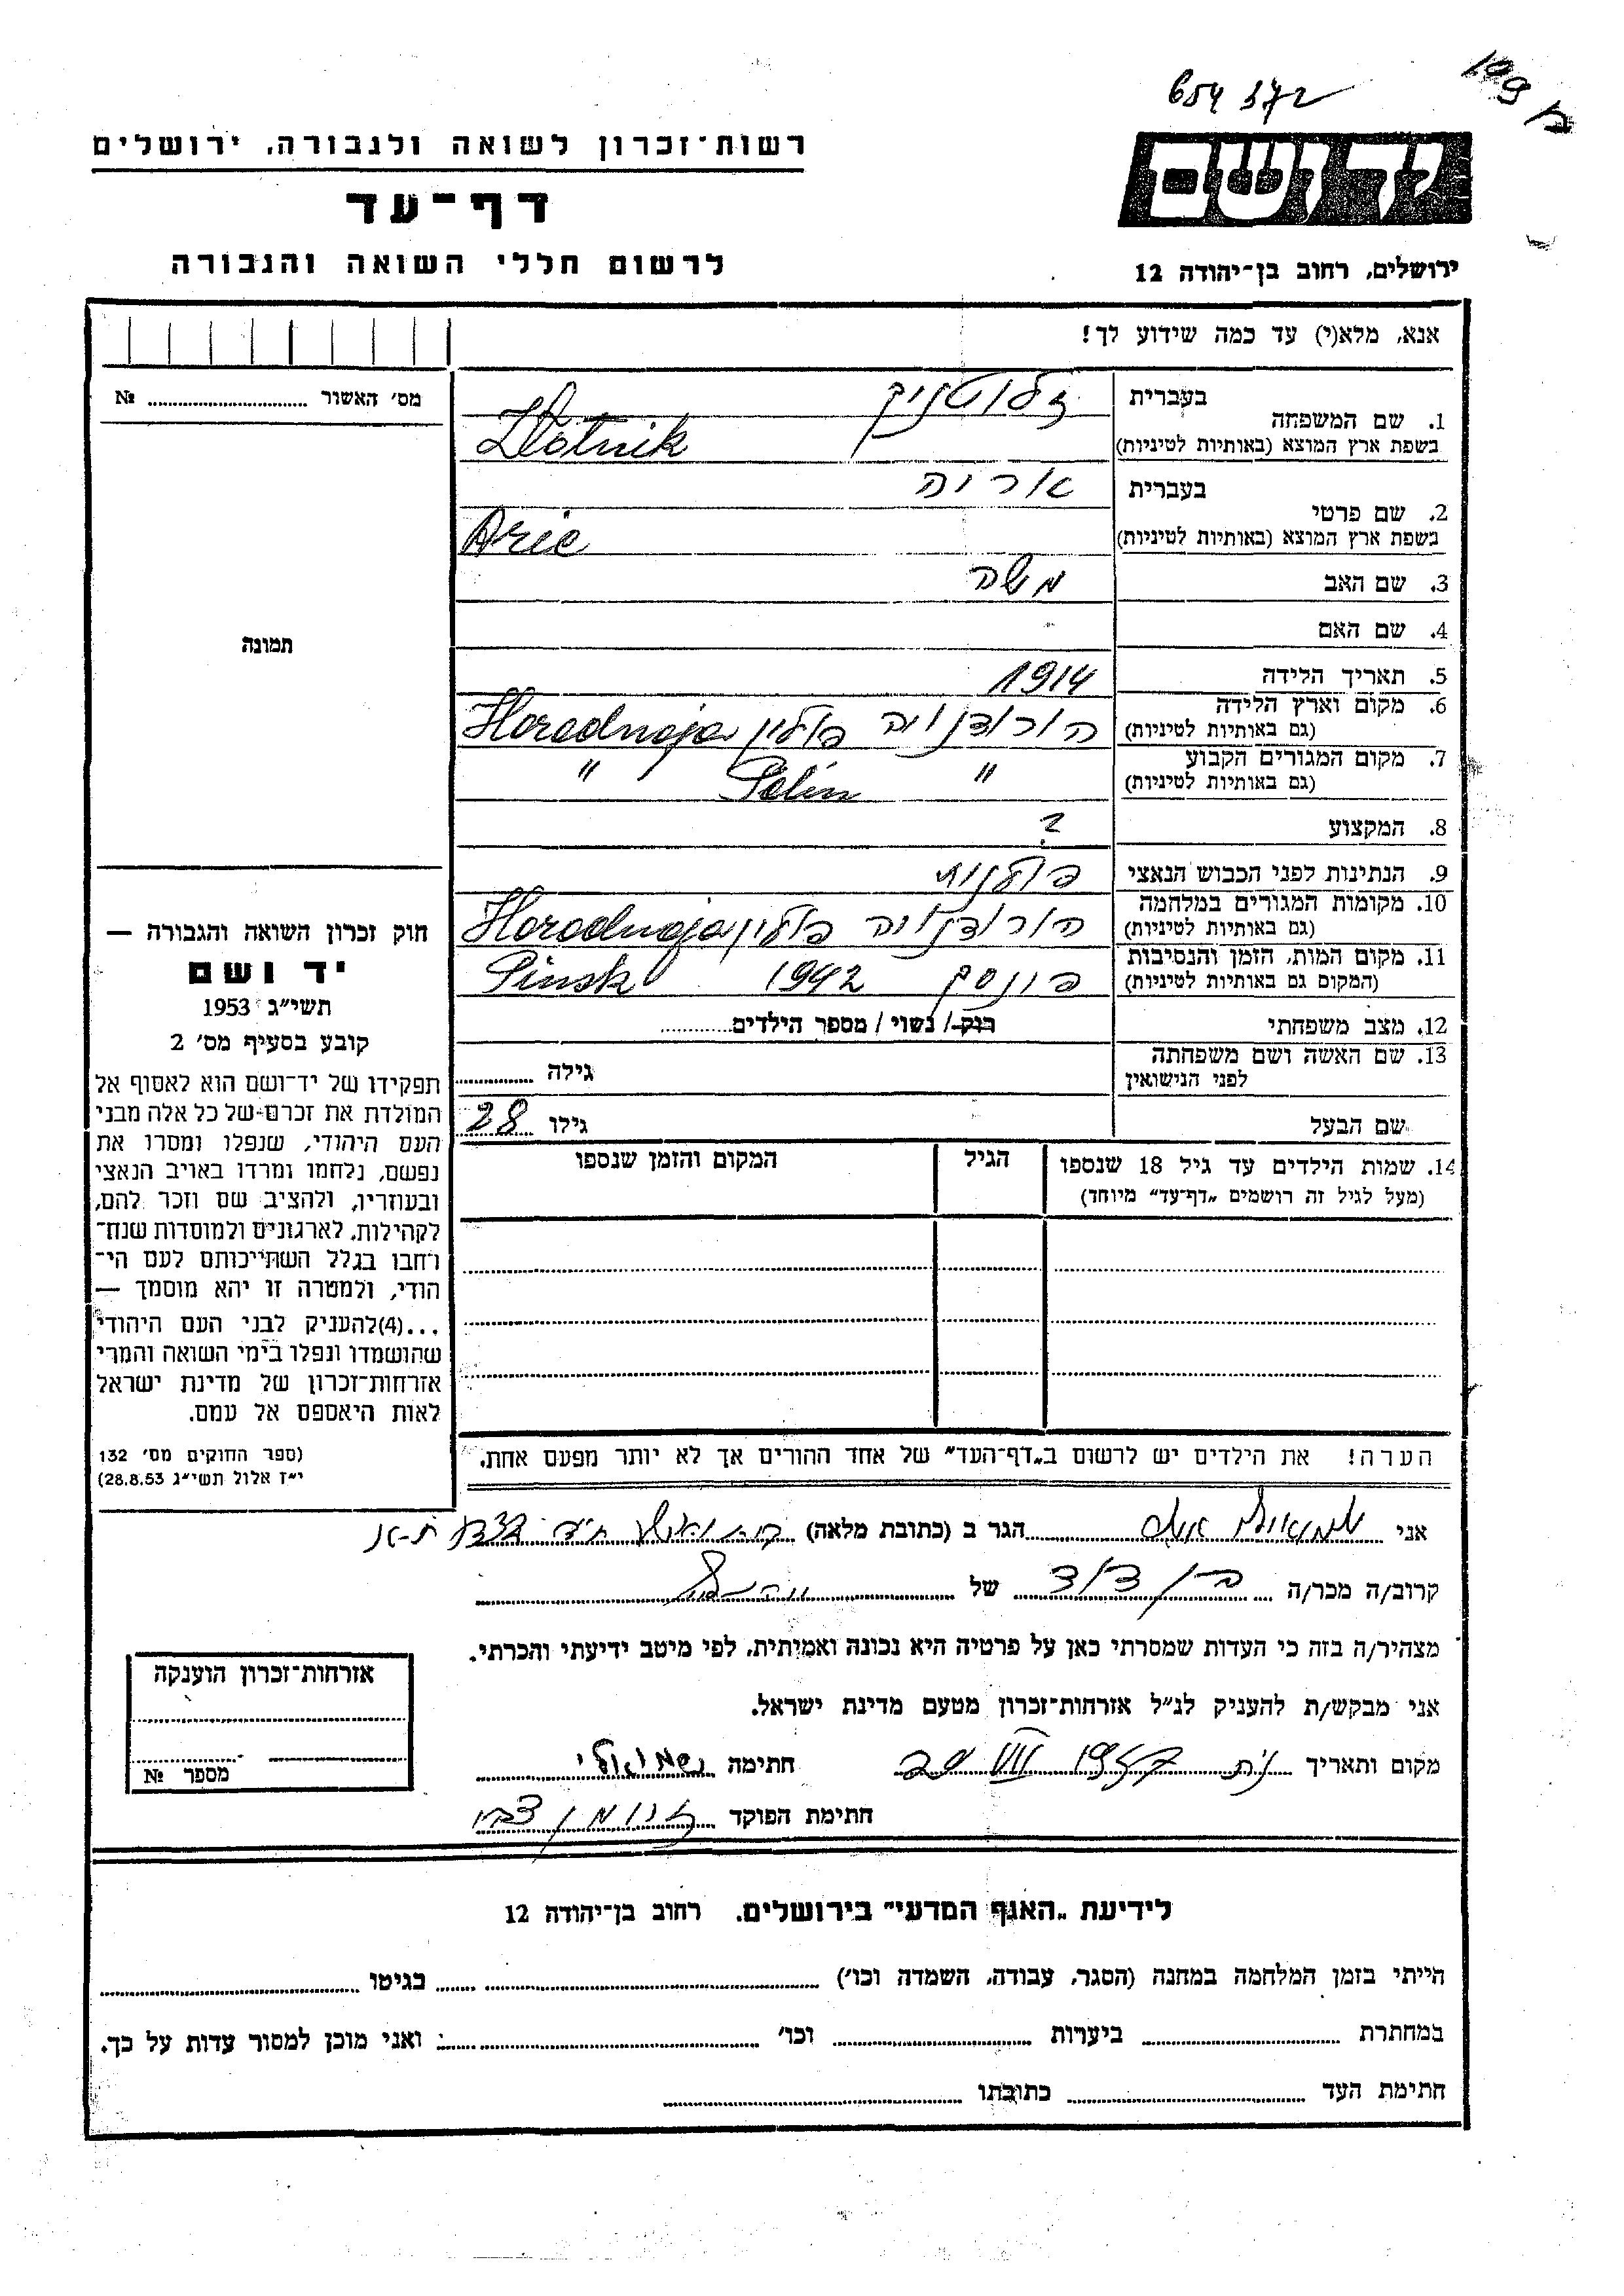 654 372
רשות־זכרון לשואה ולגבורה, ירושלים
יד ושם
דף־עד
לרשום חללי השואה והגבורה
ירושלים, רחוב בן־יהודה 12
אנא, מלא(י) עד כמה שידוע לך!
מס' האשור № 
1. שם המשפחה בעברית זלוטניק
בשפת ארץ המוצא (באותיות לטיניות) Zlotnik
2. שם פרטי בעברית אריה
בשפת ארץ המוצא (באותיות לטיניות) Arie
3. שם האב משה
תמונה
4. שם האם
5. תאריך הלידה 1914
6. מקום וארץ הלידה (גם באותיות לטיניות) הורודנויה פולין Horodnoja
7. מקום המגורים הקבוע (גם באותיות לטיניות) " Polin "
8. המקצוע ?
9. הנתינות לפני הכבוש הנאצי פולנית
10. מקומות המגורים במלחמה (גם באותיות לטיניות) הורודנויה פולין Horodnoja
11. מקום המות, הזמן והנסיבות (המקום גם באותיות לטיניות) פינסק 1942 Pinsk
12. מצב משפחתי רוק / נשוי / מספר הילדים
13. שם האשה ושם משפחתה לפני הנישואין גילה
שם הבעל גילו 28
14. שמות הילדים עד גיל 18 שנספו הגיל המקום והזמן שנספו
(מעל לגיל זה רושמים „דף־עד" מיוחד)
חוק זכרון השואה והגבורה —
יד ושם
תשי"ג 1953
קובע בסעיף מס' 2
תפקידו של יד־ושם הוא לאסוף אל
המולדת את זכרם של כל אלה מבני
העם היהודי, שנפלו ומסרו את
נפשם, נלחמו ומרדו באויב הנאצי
ובעוזריו, ולהציב שם וזכר להם,
לקהילות, לארגונים ולמוסדות שנח־
רחבו בגלל השתייכותם לעם הי־
הודי, ולמטרה זו יהא מוסמך —
...(4)להעניק לבני העם היהודי
שהושמדו ונפלו בימי השואה והמרי
אזרחות־זכרון של מדינת ישראל
לאות היאספם אל עמם.
(ספר החוקים מס' 132
י"ז אלול תשי"ג 28.8.53)
הערה! את הילדים יש לרשום ב„דף־העד" של אחד ההורים אך לא יותר מפעם אחת.
אני הגר ב (כתובת מלאה) ת-א
קרוב/ה מכר/ה בן דוד של
מצהיר/ה בזה כי העדות שמסרתי כאן על פרטיה היא נכונה ואמיתית, לפי מיטב ידיעתי והכרתי.
אני מבקש/ת להעניק לנ"ל אזרחות־זכרון מטעם מדינת ישראל.
מקום ותאריך חתימה
חתימת הפוקד
אזרחות־זכרון הוענקה
מספר №
לידיעת „האגף המדעי" בירושלים, רחוב בן־יהודה 12
הייתי בזמן המלחמה במחנה (הסגר, עבודה, השמדה וכו') בגיטו
במחתרת ביערות וכו' ואני מוכן למסור עדות על כך.
חתימת העד כתובתו